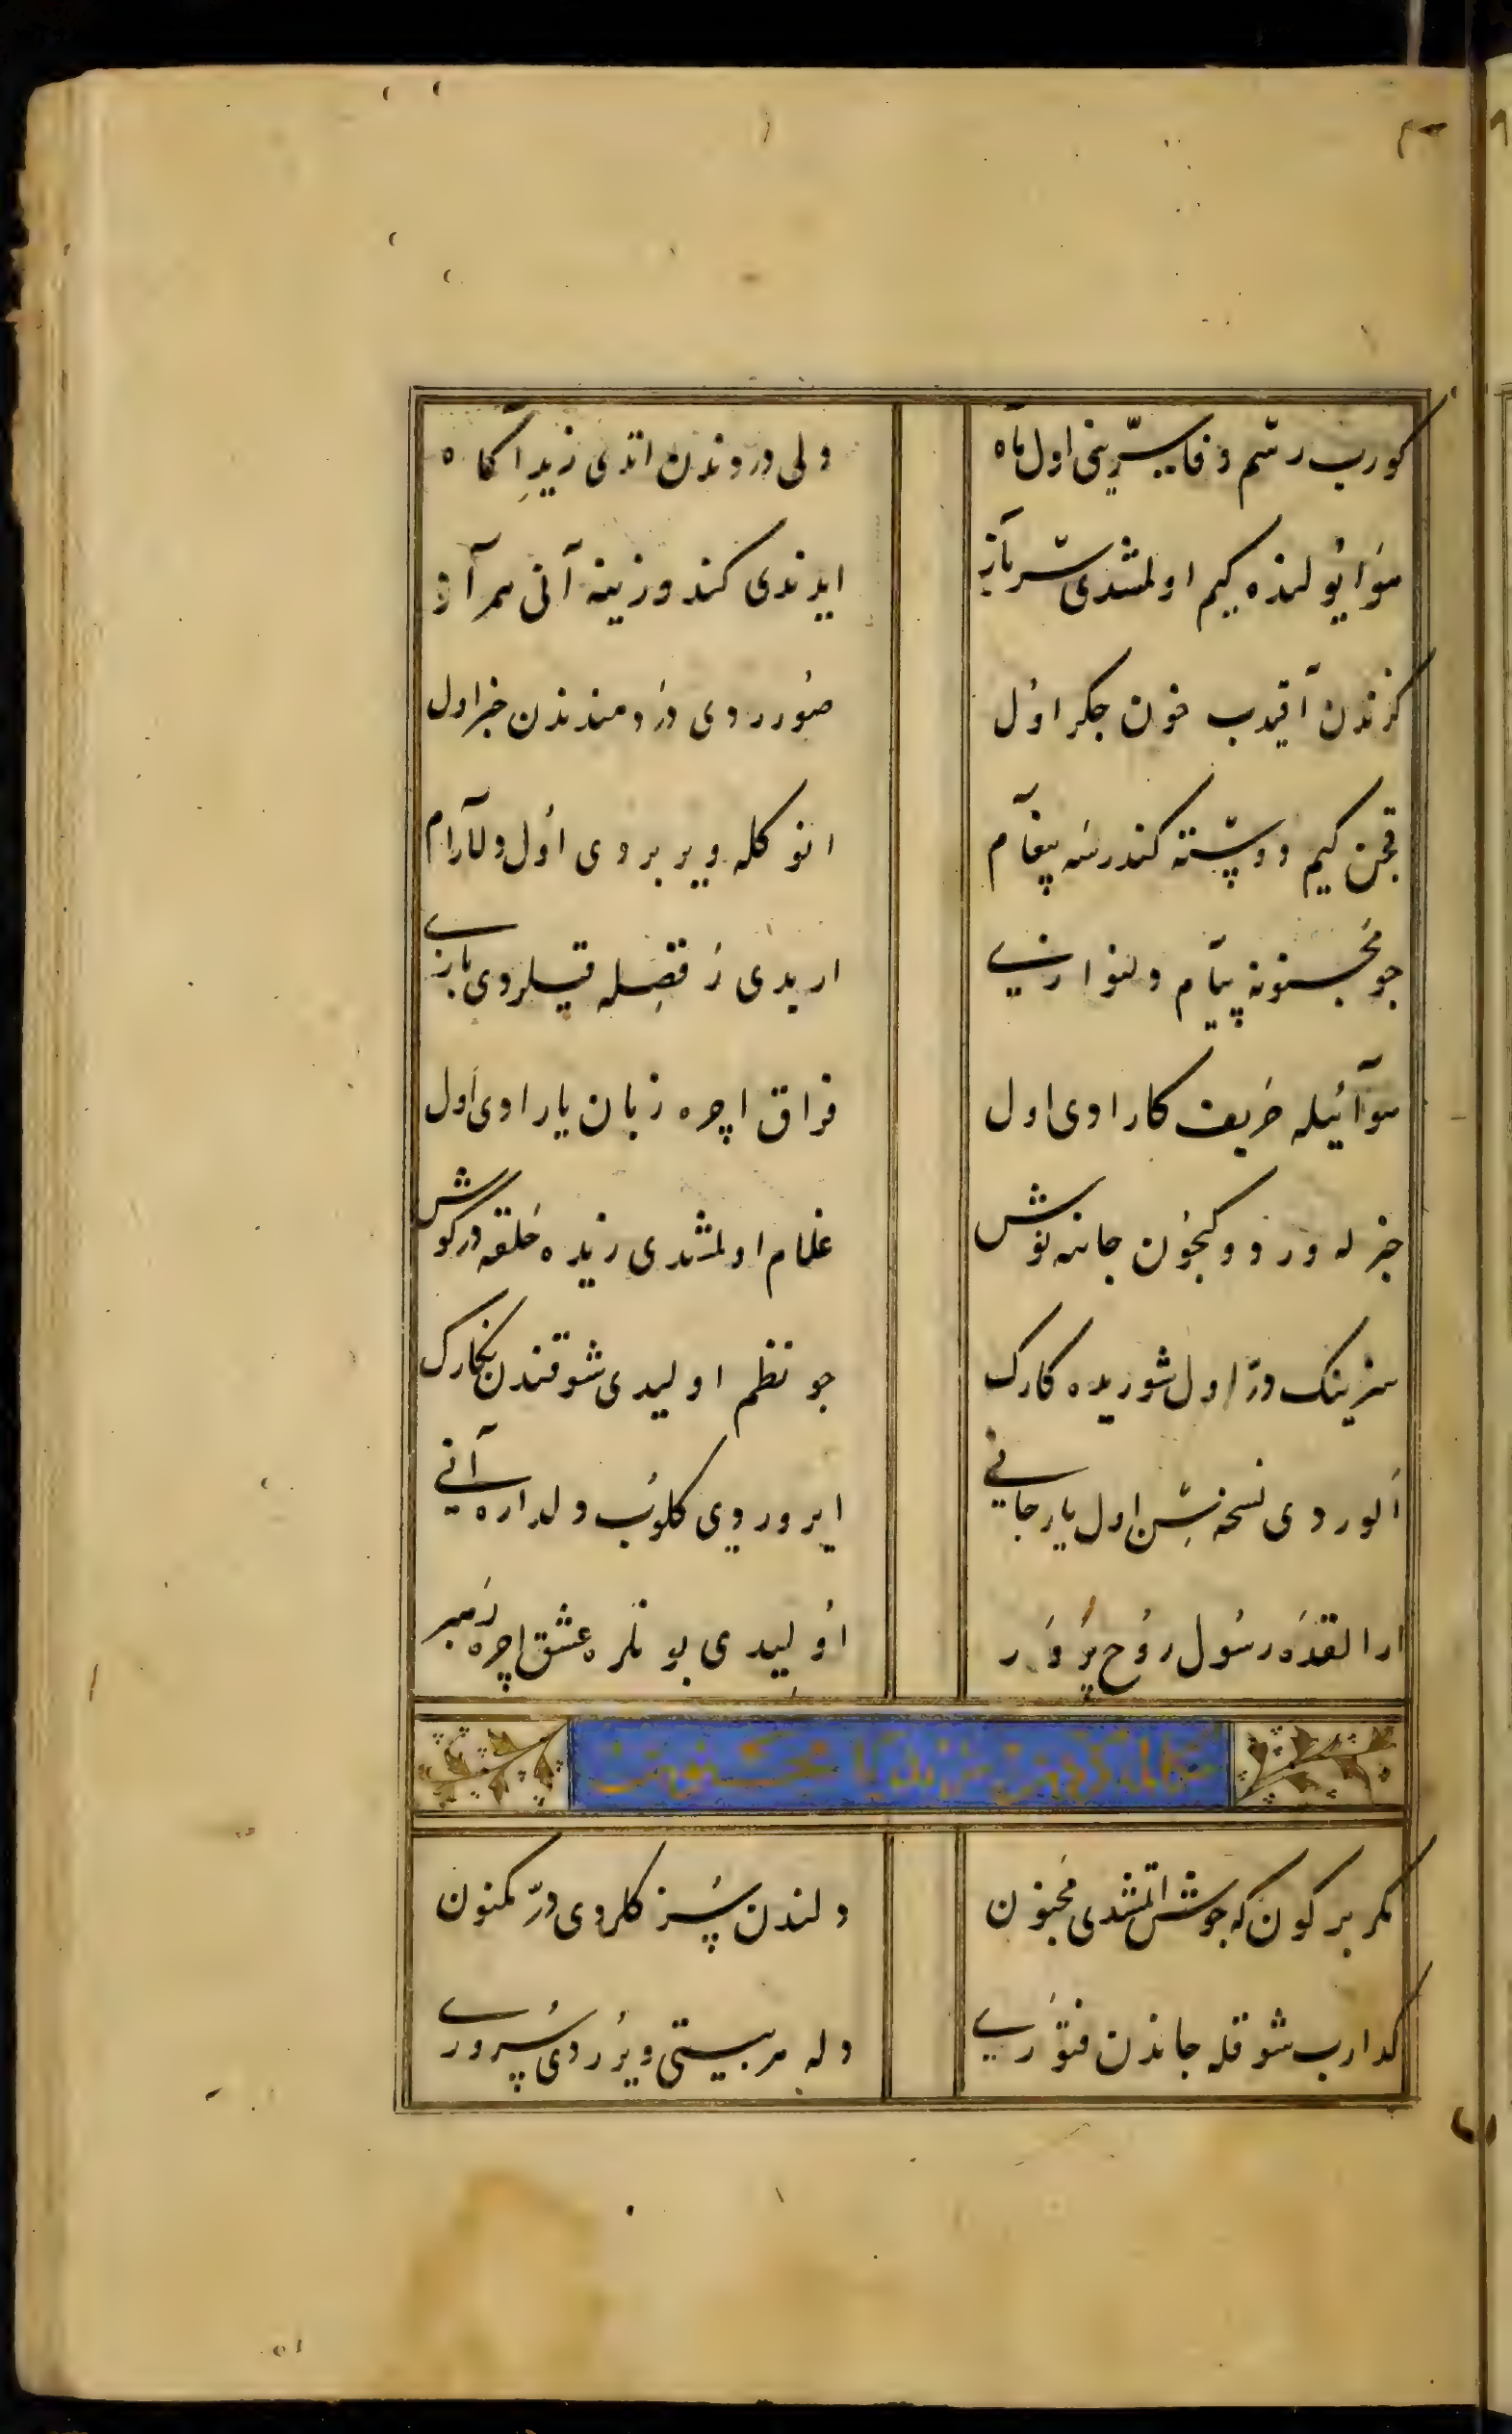 كورب رسم وفا سیرینی اول ماه
ولی دروندن اتدی زیدِ آكاه
هوا یولنده كیم اولمشدی سرباز
ایدندی كندوزینه آنی همراز
كزندن آقیدب خون جكر اول
صوررودی دردمندندن خبر اول
قچن كیم دوسته كندرسه پیغام
انوكله ویربردی اول دلارام
چو مجنونه پیام دلنوازی
اریدی رقصله قیلردی بازی
هوآئیله حریف كاراوی اول
فراق اچره زبان یاراوی اول
خبرله دردوكیچون جاننه نوش
غلام اولمشدی زیده حلقه دركوش
سزینك درّ اول شوریده كارك
چو نظم اولیدی شوقندن نكارك
الوردی نسخه‌سن اول یار جانی
ایروردی كلوب دلداره آنی
ارالقده رسول روح پرور
اولیدی بونلره عشق اچره رهبر
مكر بر كون كه جوش اتمشدی مجنون
دلندن سز كلردی درّ مكنون
كدارب شوقله جاندن فتوری
دله هر بیتی ویرردی سروری